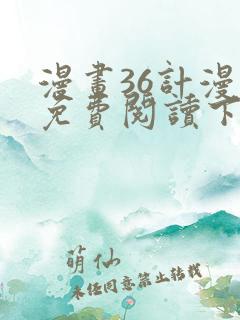 漫畫36計漫
免費閱讀下
萌仙
未经同意禁止转载